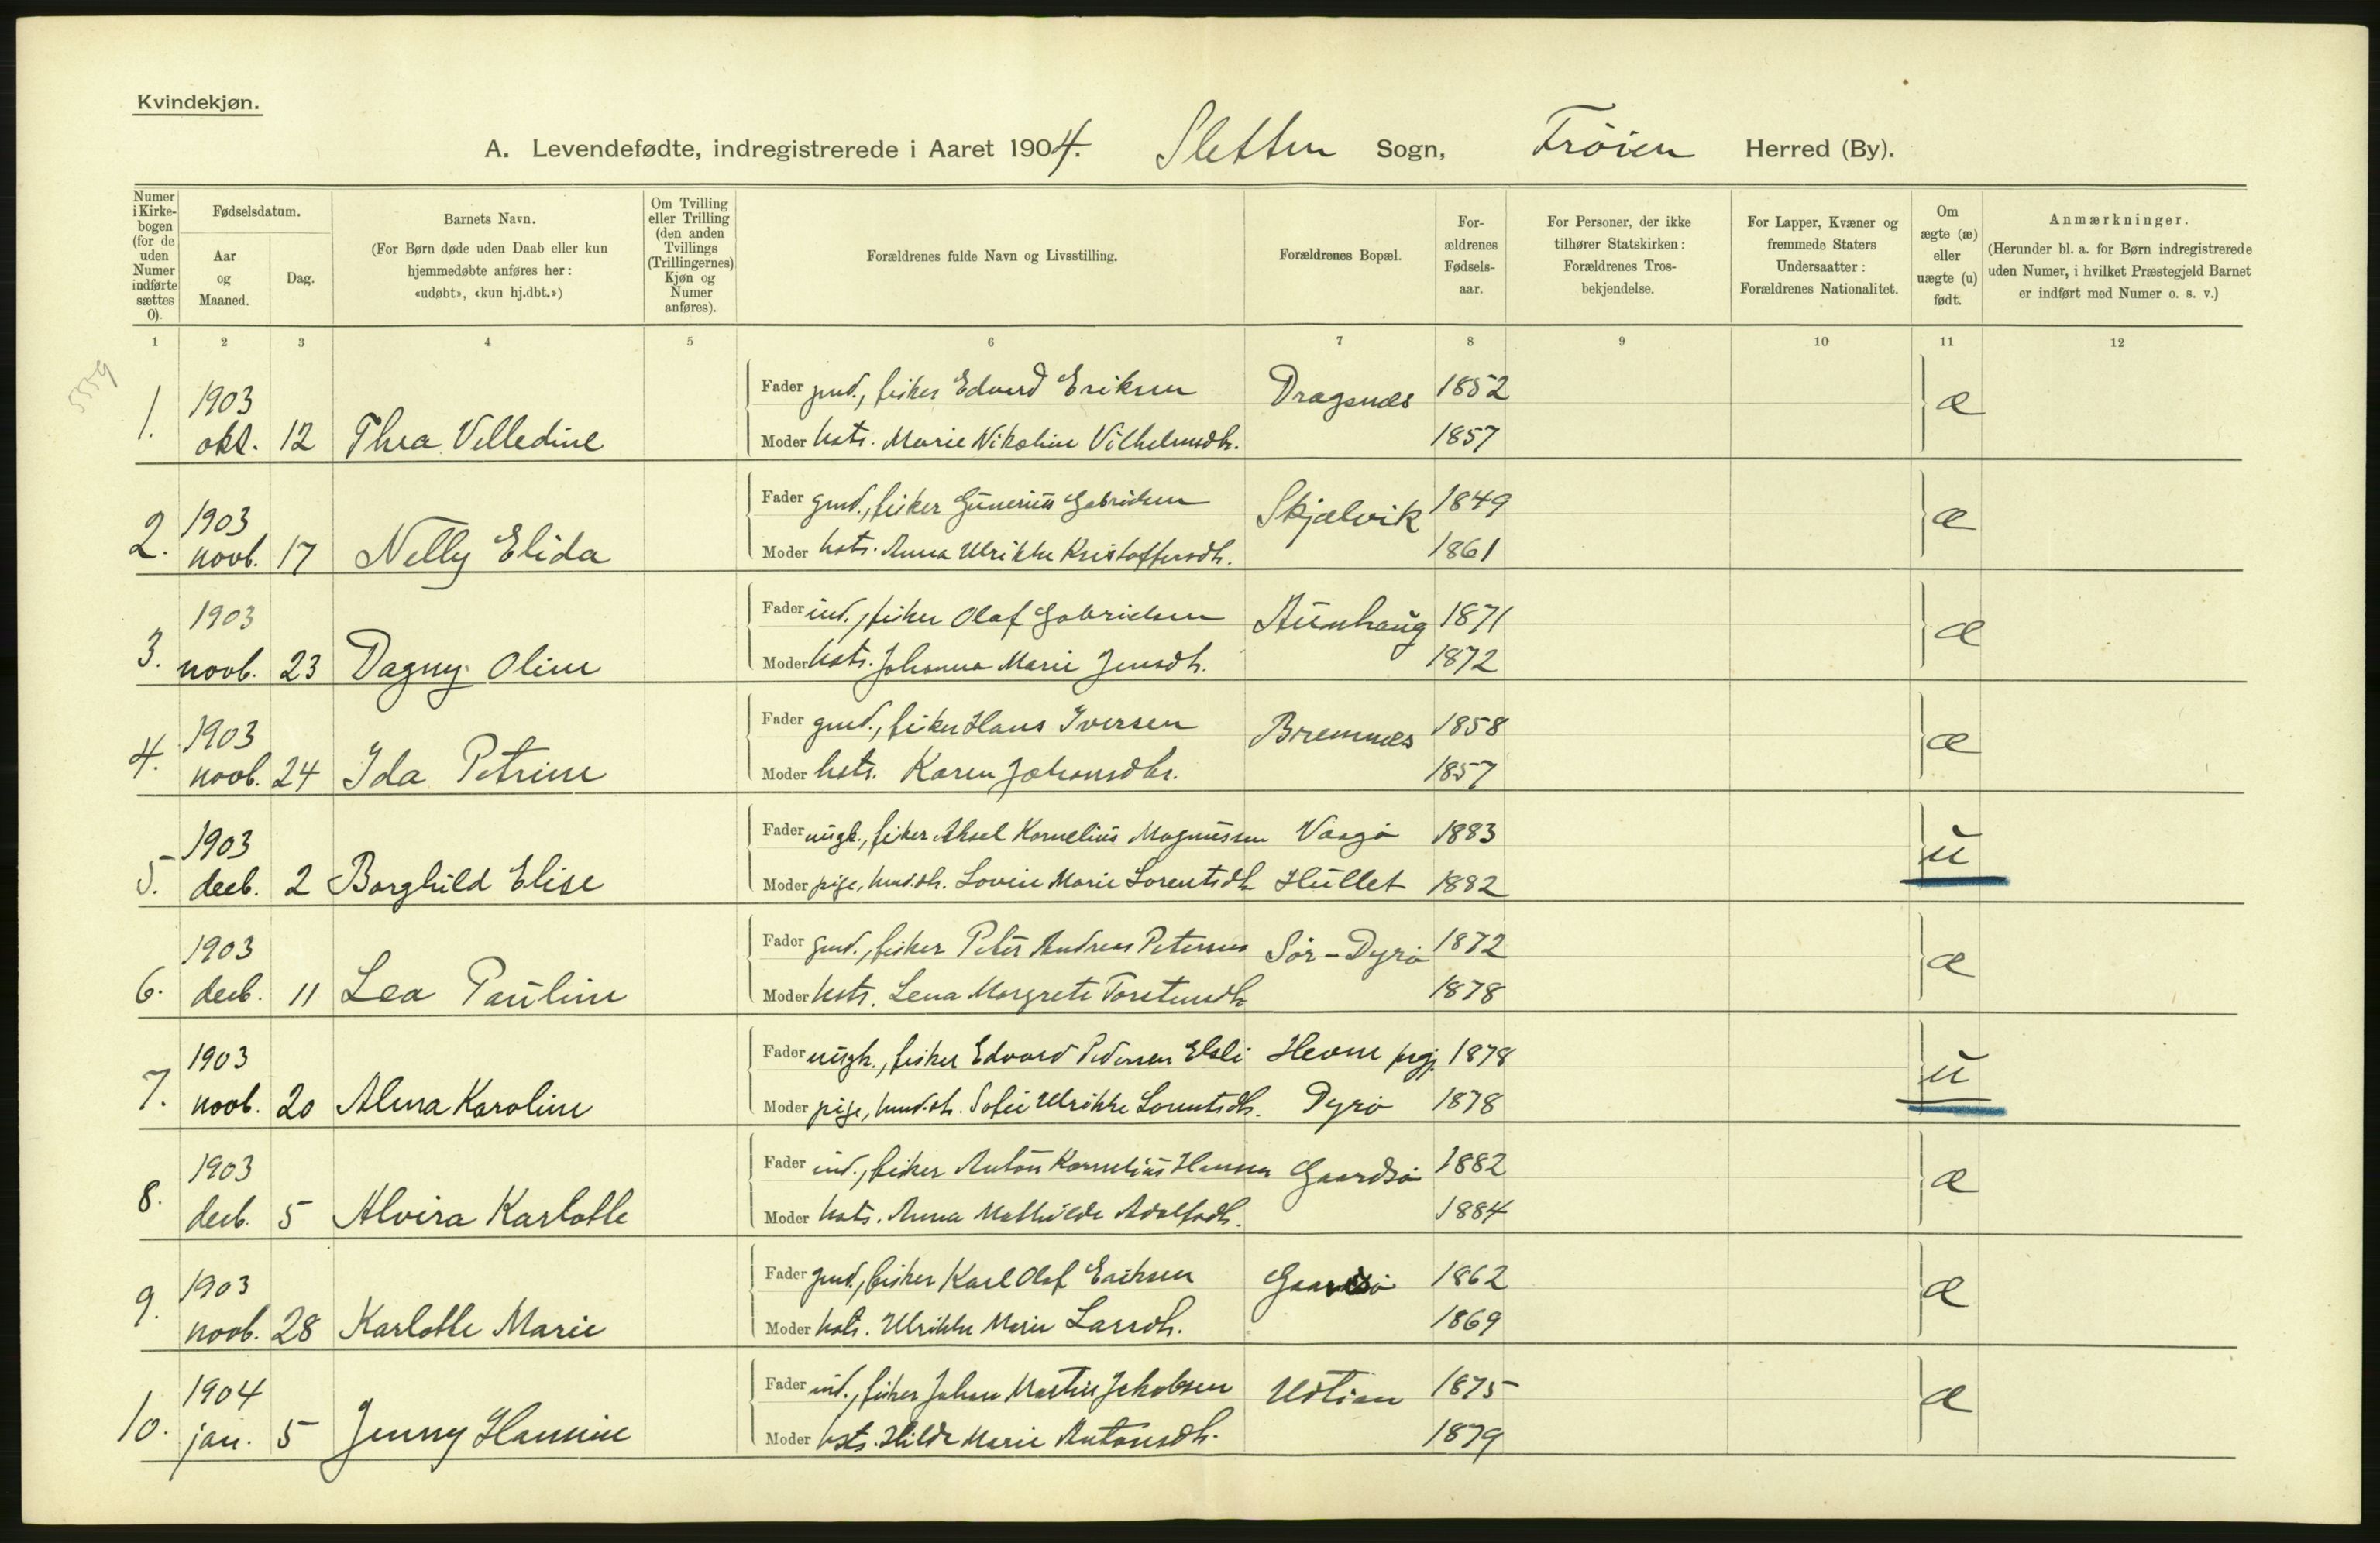 Kvindekjøn.
A. Levendefødte, indregistrerede i Aaret 1904. Sletten Sogn, Frøien Herred (By).
Numer i Kirke-bogen (for de uden Numer indførte sættes 0).
Fødselsdatum.
Aar og Maaned.
Dag.
Barnets Navn.
(For Børn døde uden Daab eller kun hjemmedøbte anføres her: «udøbt», «kun hj.dbt.»)
Om Tvilling eller Trilling (den anden Tvillings (Trillingernes) Kjøn og Numer anføres).
Forældrenes fulde Navn og Livsstilling.
Forældrenes Bopæl.
For-ældrenes Fødsels-aar.
For Personer, der ikke tilhører Statskirken: Forældrenes Tros-bekjendelse.
For Lapper, Kvæner og fremmede Staters Undersaatter: Forældrenes Nationalitet.
Om ægte (æ) eller uægte (u) født.
Anmærkninger.
(Herunder bl. a. for Børn indregistrerede uden Numer, i hvilket Præstegjeld Barnet er indført med Numer o. s. v.)
1 2 3 4 5 6 7 8 9 10 11 12
5559
1. 1903 okt. 12 Thea Velledine
Fader gmd., fisker Edvard Eriksen Dragsnæs 1852 æ
Moder hstr. Marie Nikoline Vilhelmsdtr. 1857
2. 1903 novb. 17 Nelly Elida
Fader gmd., fisker Gunerius Gabrielsen Skjælvik 1849 æ
Moder hstr. Anna Ulrikke Kristoffersdtr. 1861
3. 1903 novb. 23 Dagny Oline
Fader ind., fisker Olaf Gabrielsen Aunhaug 1871 æ
Moder hstr. Johanna Marie Jensdtr. 1872
4. 1903 novb. 24 Ida Petrine
Fader gmd., fisker Hans Iversen Bremnes 1858 æ
Moder hstr. Karen Johansdtr. 1857
5. 1903 decb. 2 Borghild Elise
Fader ungk., fisker Aksel Kornelius Magnussen Vasøo 1883 u
Moder pige, hmd.dtr. Lovise Marie Lorentsdtr Hullet 1882
6. 1903 decb. 11 Lea Pauline
Fader gmd., fisker Peter Andreas Petersen Sør-Dyrø 1872 æ
Moder hstr. Lena Margrete Torstensdtr 1878
7. 1903 novb. 20 Alma Karoline
Fader ungk., fisker Edvard Pedersen Elsli Hevne prgj. 1878 u
Moder pige, hmd.dtr. Sofie Ulrikke Lorentsdtr. Dyrø 1878
8. 1903 decb. 5 Alvira Karlotte
Fader ind., fisker Anton Kornelius Hansen Gaardsø 1882 æ
Moder hstr. Anna Mathilde Adolfsdtr. 1884
9. 1903 novb. 28 Karlotte Marie
Fader gmd., fisker Karl Olaf Eriksen Gaardsø 1862 æ
Moder hstr. Ulrikke Marie Larsdtr. 1869
10. 1904 jan. 5 Jenny Hansine
Fader ind., fisker Johan Martin Jakobsen Udtian 1875 æ
Moder hstr. Hilda Marie Antonsdtr. 1879